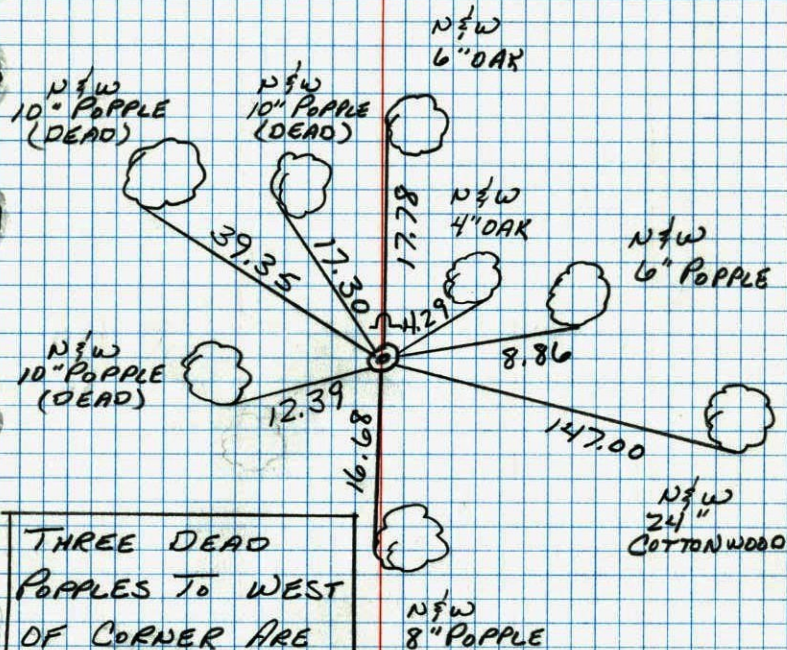 N & W
6" OAK
N & W
10" POPPLE
(DEAD)
N & W
10" POPPLE
(DEAD)
N & W
4" OAK
N & W
6" POPPLE
39.35
17.30
17.78
4.29
8.86
N & W
10" POPPLE
(DEAD)
12.39
147.00
16.98
N & W
24"
COTTONWOOD
N & W
8" POPPLE
THREE DEAD
POPPLES TO WEST
OF CORNER ARE